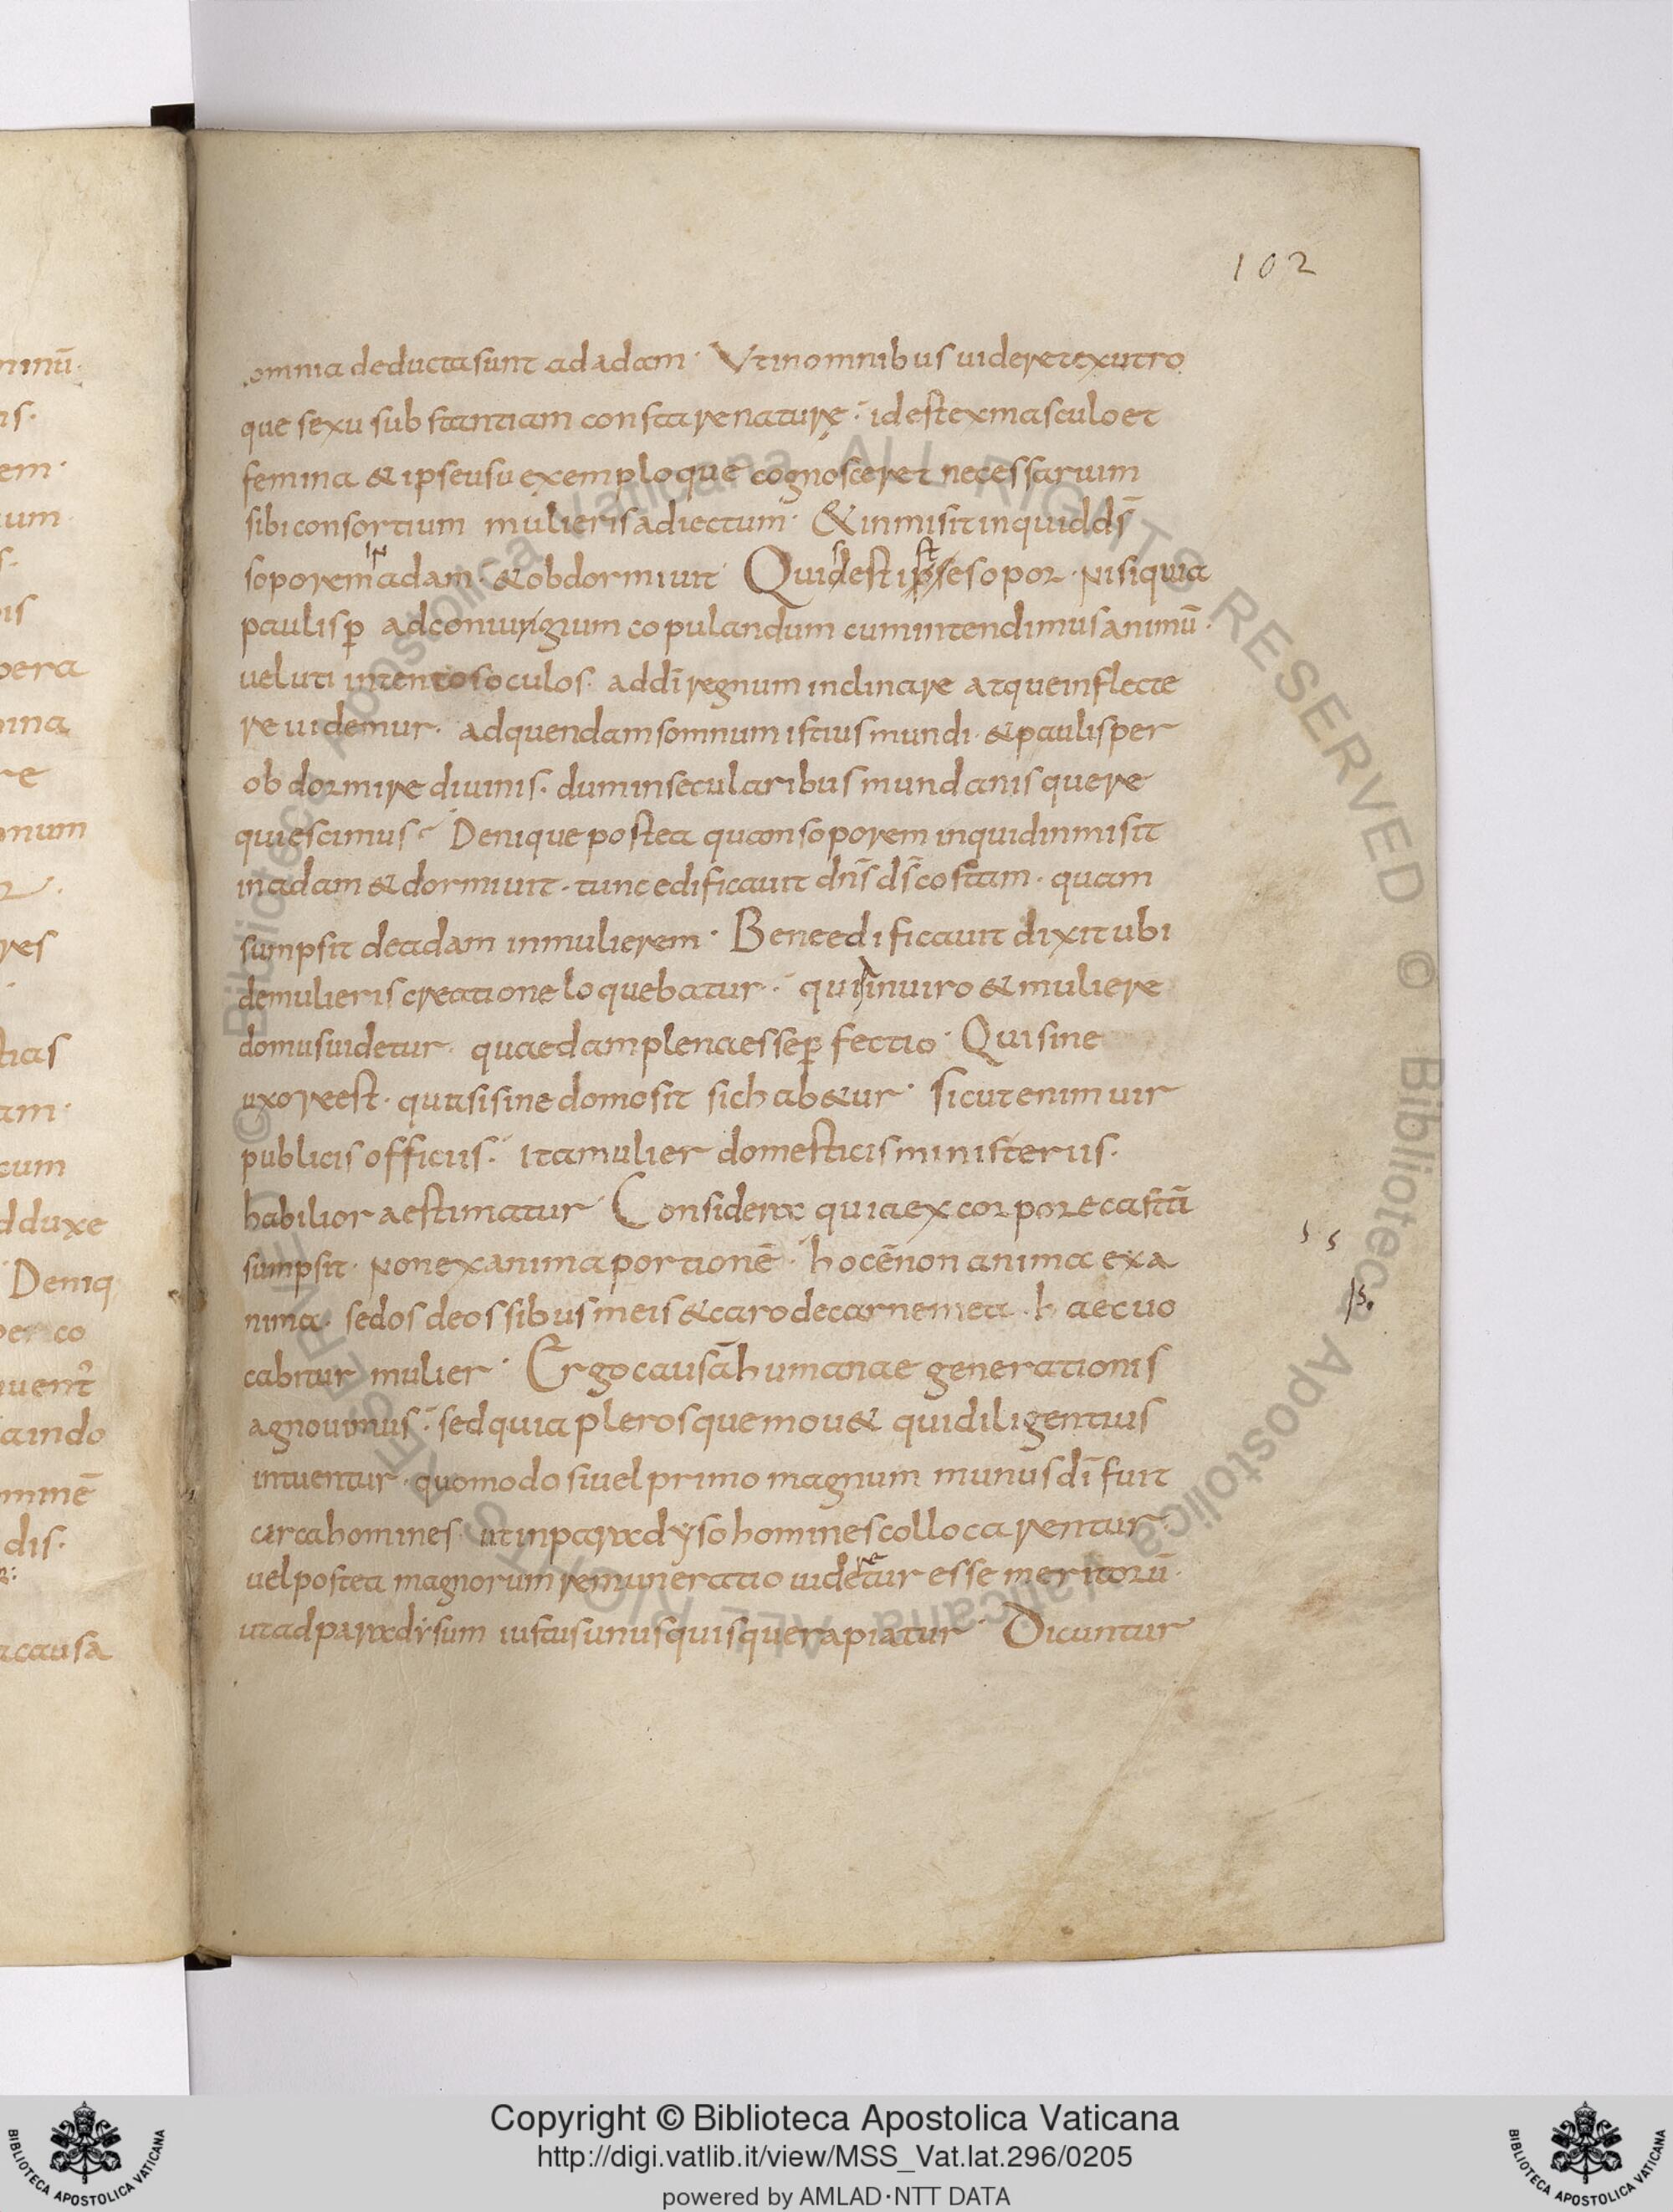 102
omnia deducta sunt ad adam · Vt in omnibus uideret ex utro
que sexu substantiam constare naturę · id est ex masculo et
femina & ipse usu exemploque cognosceret necessarium
sibi consortium mulieris adiectum · & inmisit inquid ds̄
soporem in adam · & obdormiuit Quis est iste sopor · nisi quia
paulisꝑ ad coniugium copulandum cum intendimus animū ·
ueluti intentos oculos · ad dī regnum inclinare atque inflecte
re uidemur · ad quendam somnum istius mundi · & paulisper
obdormire diuinis · dum in secularibus mundanisque re
quiescimus · Denique postea quam soporem inquid inmisit
in adam & dormiuit · tunc edificauit dn̄s ds̄ costam · quam
sumpsit de adam in mulierem · Bene edificauit dixit ubi
de mulieris creatione loquebatur · quia in uiro & muliere
domus uidetur · quaedam plena esse ꝑfectio · Qui sine
uxore est · quasi sine domo sit sic hab&ur · sicut enim uir
publicis officiis · ita mulier domesticis ministeriis ·
habilior aestimatur Considera quia ex corpore castā
sumpsit · non ex anima portionē · hoc ē non anima ex a
nima · sed os de ossibus meis & caro de carne mea · haec uo
cabitur mulier · Ergo causā humanae generationis
agnouimus · sed quia plerosque mou& qui diligentius
intuentur · quomodo si uel primo magnum munus dī fuit
circa homines · ut in paradyso homines collocarentur ·
uel postea magnorum remuneratio uideretur esse meritorū ·
ut ad paradysum iustus unusquisque rapiatur · Dicuntur
minū ·
em ·
um ·
pera
mina
re
onum
res
tias
am ·
cum
dduxe
Deniq
per co
aindo
mmē
dis ·
a causa
© Biblioteca Apostolica Vaticana ALL RIGHTS RESERVED
© Biblioteca Apostolica Vaticana ALL RIGHTS RESERVED
BIBLIOTECA APOSTOLICA VATICANA
Copyright © Biblioteca Apostolica Vaticana
http://digi.vatlib.it/view/MSS_Vat.lat.296/0205
powered by AMLAD·NTT DATA
BIBLIOTECA APOSTOLICA VATICANA